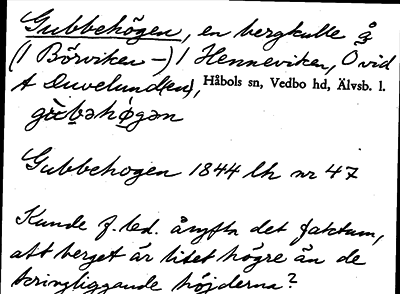 Gubbehögen, en bergkulle å
(1 Börviken –) 1 Henneviken, Ö vid
A Duvelund(en), Håbols sn, Vedbo hd, Älvsb. l.
Gubbehogen 1844 lh nr 47
Kunde f. led. åsyfta det faktum,
att berget är litet högre än de
kringliggande höjderna?